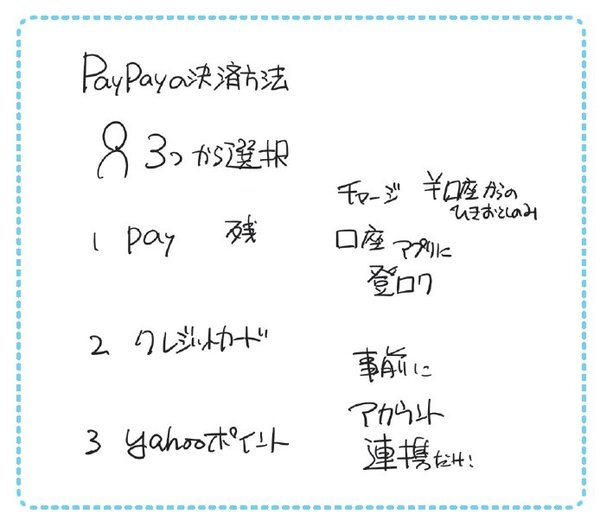 PayPayの決済方法
3つから選択
1 pay 残
チャージ ¥口座からの
ひきおとしのみ
口座 アプリに
登ロク
2 クレジットカード
事前に
3 yahooポイント
アカウント
連携だけ!